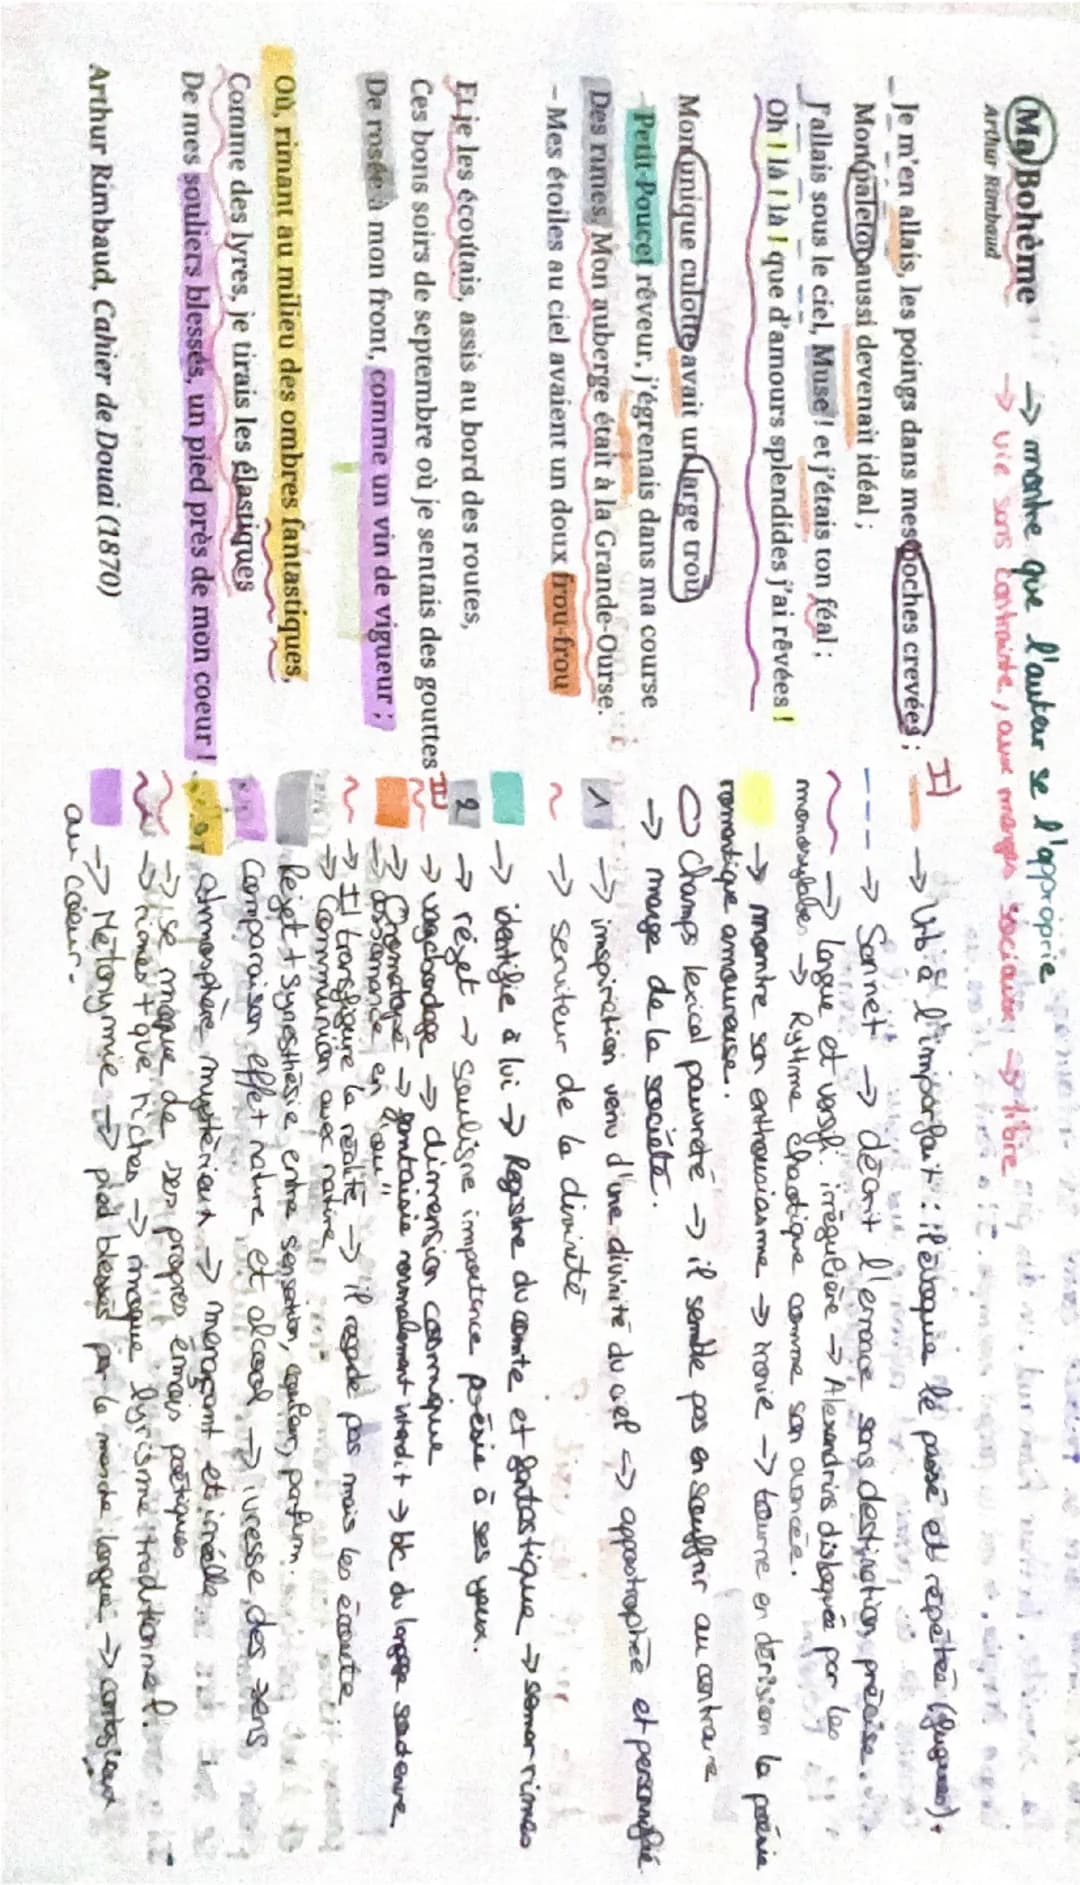 Ma Bohème → montre que l'auteur se l'approprie
Arthur Rimbaud → vie sans contrainte, aux marges sociaux → libre
Je m'en allais, les poings dans mes poches crevées ;
Mon paletot aussi devenait idéal ;
J'allais sous le ciel, Muse ! et j'étais ton féal ;
Oh ! là ! là ! que d'amours splendides j'ai rêvées !
Mon unique culotte avait un large trou.
- Petit-Poucet rêveur, j'égrenais dans ma course
Des rimes. Mon auberge était à la Grande-Ourse.
- Mes étoiles au ciel avaient un doux frou-frou
Et je les écoutais, assis au bord des routes,
Ces bons soirs de septembre où je sentais des gouttes
De rosée à mon front, comme un vin de vigueur ;
Où, rimant au milieu des ombres fantastiques,
Comme des lyres, je tirais les élastiques
De mes souliers blessés, un pied près de mon coeur !
Arthur Rimbaud, Cahier de Douai (1870)
I) → Vb à l'imparfait : il évoque le passé et répétée (fugues) +
→ Sonnet → décrit l'errance sans destination précise.
→ longue et versif. irrégulière → Alexandrins disloquée par les
monosyllabes → Rythme chaotique comme son avancée.
→ montre son enthousiasme → ironie → tourne en dérision la poésie
romantique amoureuse.
Champs lexical pauvreté → il semble pas en souffrir au contraire
→ marge de la société.
1 → inspiration venu d'une divinité du ciel → appostrophée et personnifié
→ serviteur de la divinité
→ identifie à lui → Registre du conte et fantastique → semer rimes
2 → rejet → souligne importance poésie à ses yeux.
II → vagabondage → dimension cosmique
→ Onomatopé → fantaisie normalement interdit → bc du langage soutenue
→ assonance en "ou"
→ Il transfigure la réalité → il regarde pas mais les écoute
→ Communion avec nature
Rejet + Synesthésie entre sensation, couleur, parfum.
Comparaison effet nature et alcool → ivresse des sens
atmosphère mystérieux → menaçant et irréelle
→ se moque de ses propres émois poétiques
→ rimes + que riches → moque lyrisme traditionnel.
→ Métonymie → pied blessés par la marche longue →
au coeur.